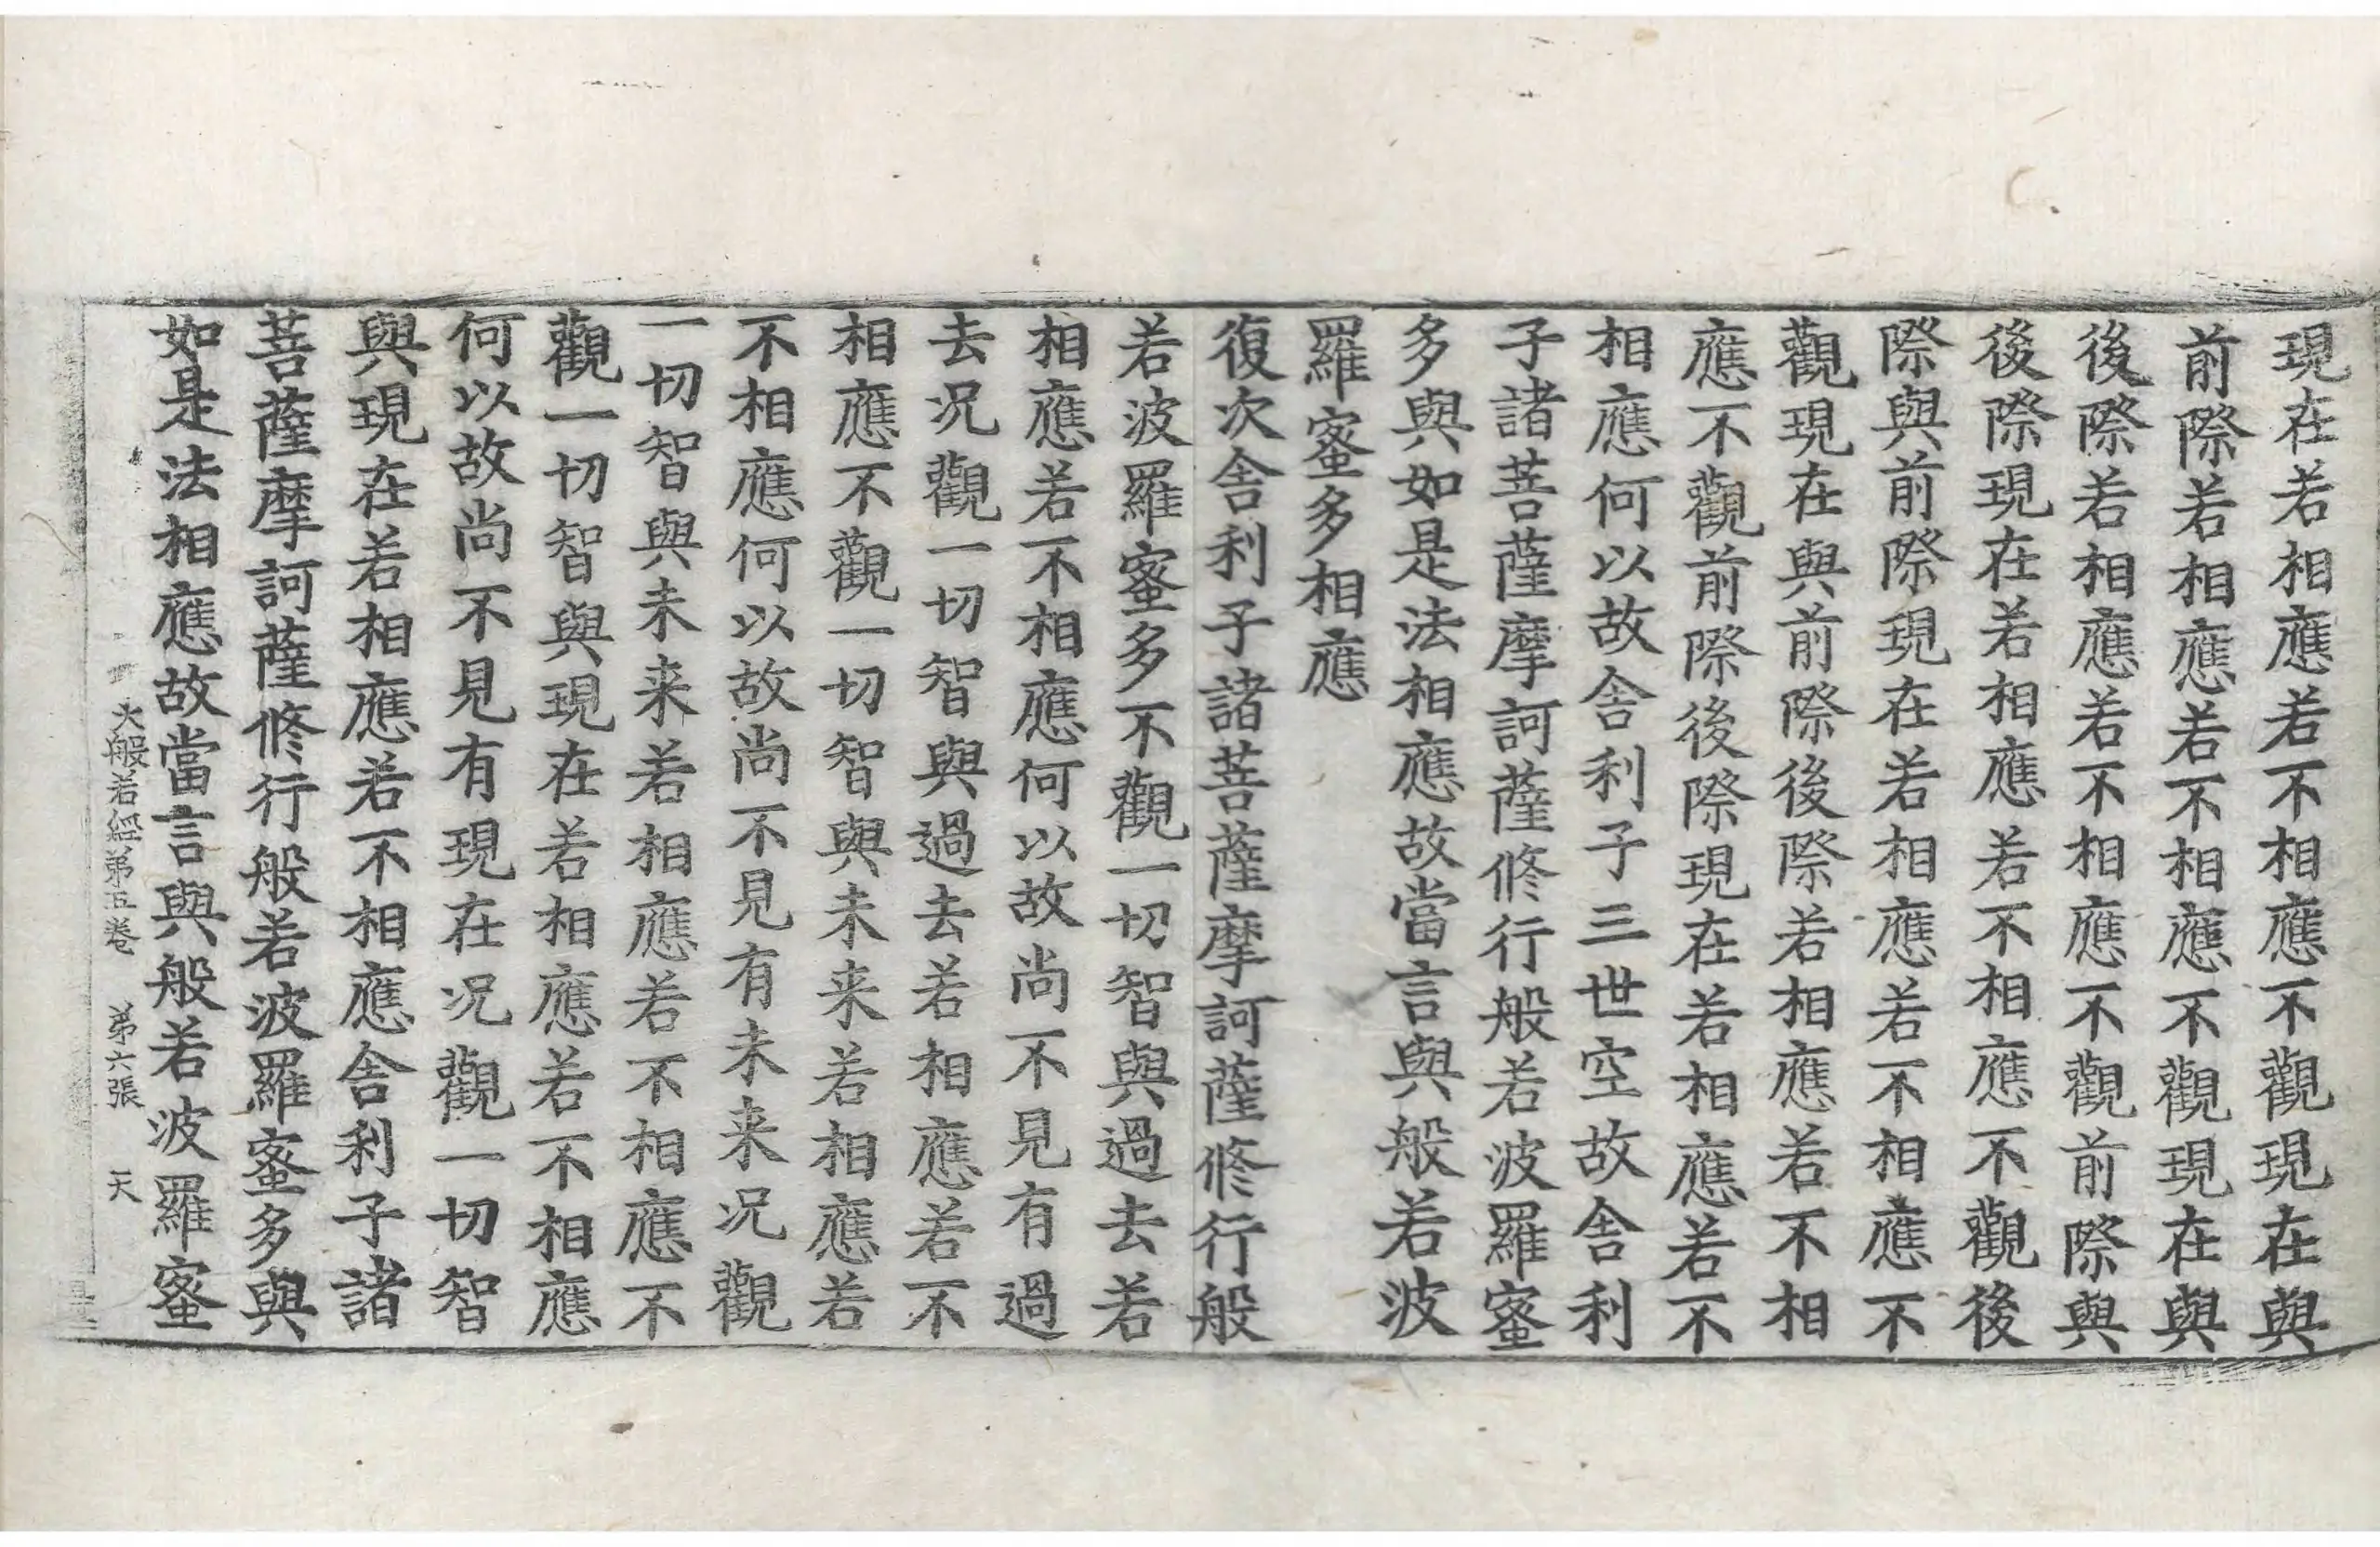 現在若相應若不相應不觀現在與
前際若相應若不相應不觀現在與
後際若相應若不相應不觀前際與
後際現在若相應若不相應不觀後
際與前際現在若相應若不相應不
觀現在與前際後際若相應若不相
應不觀前際後際現在若相應若不
相應何以故舍利子三世空故舍利
子諸菩薩摩訶薩修行般若波羅蜜
多與如是法相應故當言與般若波
羅蜜多相應
復次舍利子諸菩薩摩訶薩修行般
若波羅蜜多不觀一切智與過去若
相應若不相應何以故尚不見有過
去況觀一切智與過去若相應若不
相應不觀一切智與未来若相應若
不相應何以故尚不見有未来況觀
一切智與未来若相應若不相應不
觀一切智與現在若相應若不相應
何以故尚不見有現在況觀一切智
與現在若相應若不相應舍利子諸
菩薩摩訶薩修行般若波羅蜜多與
如是法相應故當言與般若波羅蜜
大般若經第五卷 第六張 天